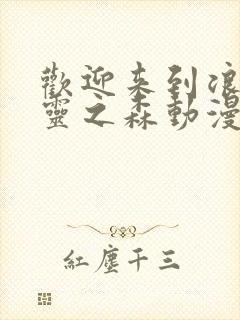 歡迎来到浪
靈之森動漫
紅塵千三